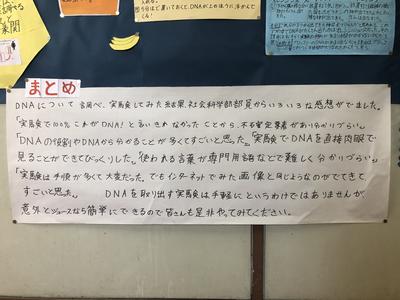 入れる。
⑤5分ほど置いておくと、DNAが上のほうに浮かんでくる。
まとめ
DNAについて調べ、実験してみた結果、社会科学間部員からいろいろな感想がでました。
「実験で100%これがDNA!と言いきれなかったことから、不安定要素があり分かりづらい。」
「DNAの役割やDNAから分かることが多くてすごいと思った。」「実験でDNAを直接肉眼で
見ることができてびっくりした。」「使われる言葉が専門用語などで難しく分かりづらい。」
「実験は手順が多くて大変だった。でもインターネットでみた画像と同じようなのがでてきて
すごいと思った。」 DNAを取り出す実験は手軽にというわけではありませんが、
意外とジュースなら簡単にできるので皆さんも是非やってみてください。